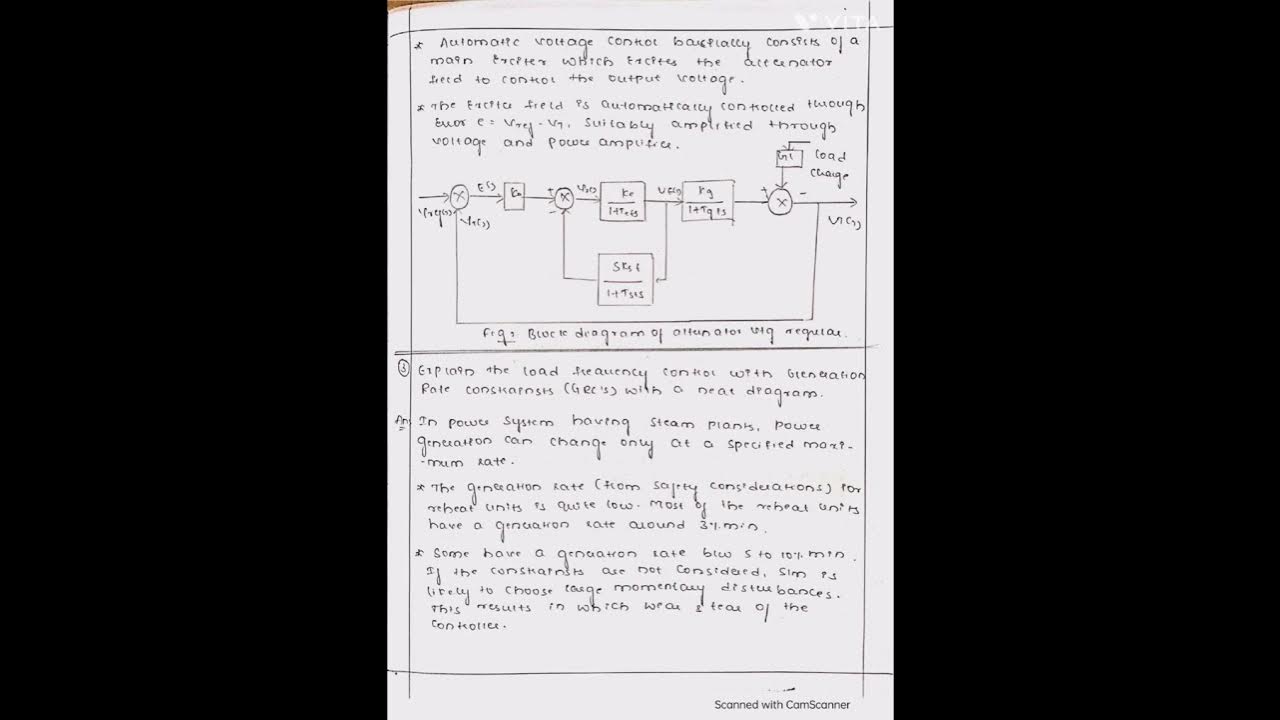 VITA
* Automatic voltage control basically consists of a
main Exciter which Excites the alternator
field to control the output voltage.
* The Exciter field is automatically controlled through
Error e = Vref - VT, Suitably amplified through
voltage and power amplifier.
load
change
E(s) Ka + Ke/1+Tefs Kg/1+Tgfs + -
Vref(s) VT(s)
SKst/1+Tsts
Fig: Block diagram of alternator vtg regular.
③ Explain the load frequency control with Generation
Rate constrainsts (GRC'S) with a neat diagram.
Ans In power system having steam plants, power
generation can change only at a specified maxi-
-mum rate.
* The generation rate (from safety considerations) for
reheat units is quite low. Most of the reheat units
have a generation rate around 3%.min.
* Some have a generation rate b/w 5 to 10%.min.
If the constrainsts are not considered, Sim is
likely to choose large momentary disturbances.
This results in which wear & tear of the
controller.
Scanned with CamScanner